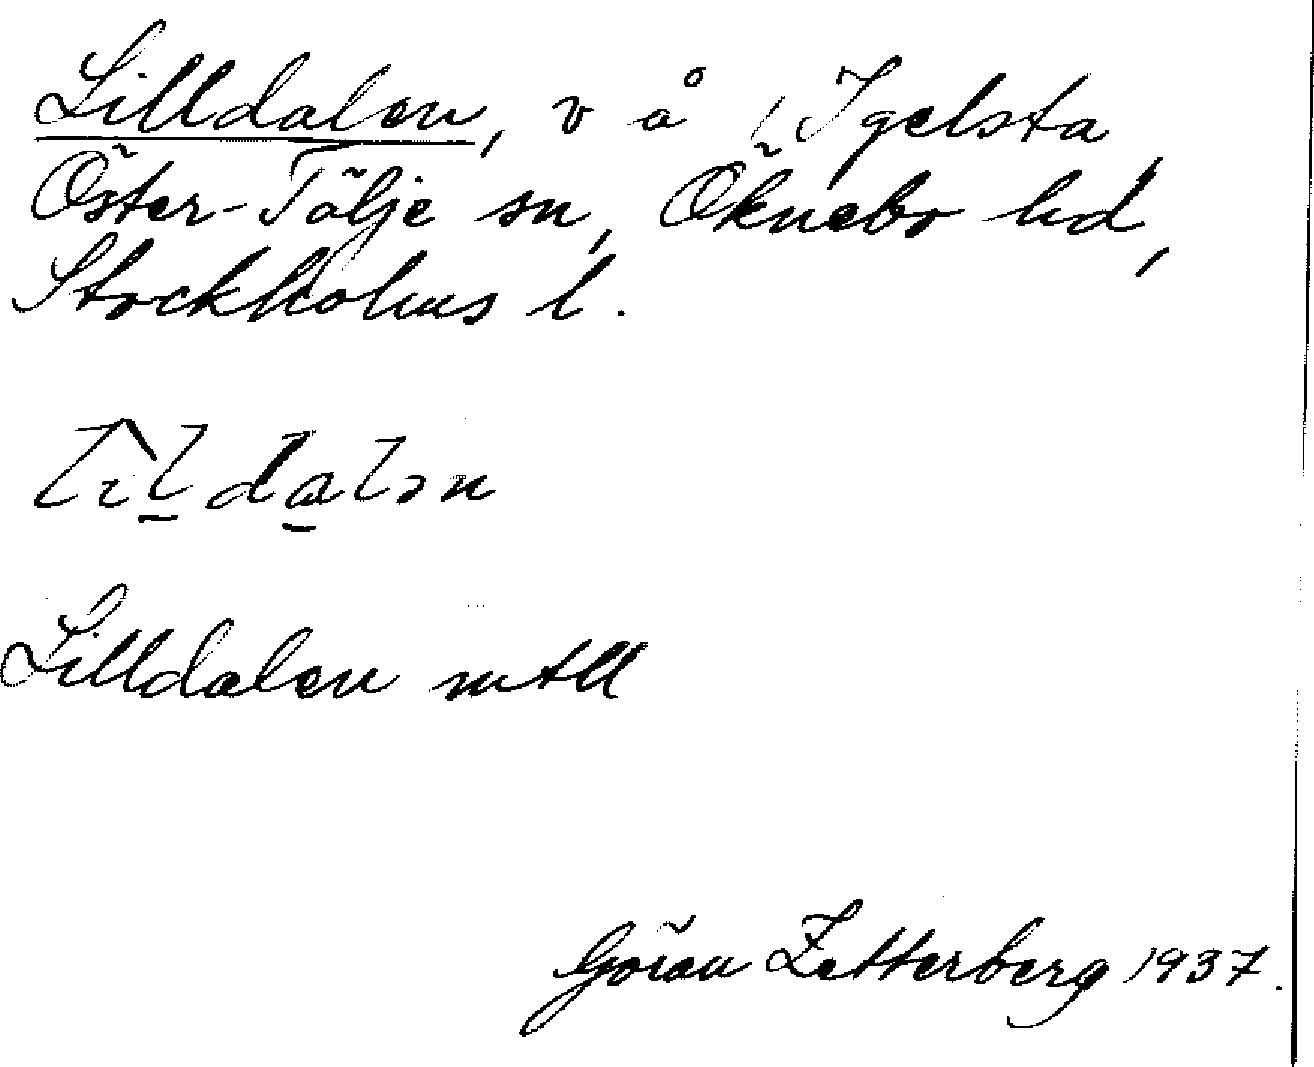 Lilldalen, v å i Igelsta
Öster-Tälje sn, Öknebo hd,
Stockholms l.
lìl̠da̠lən
Lilldalen mtll
Göran Zetterberg 1937.